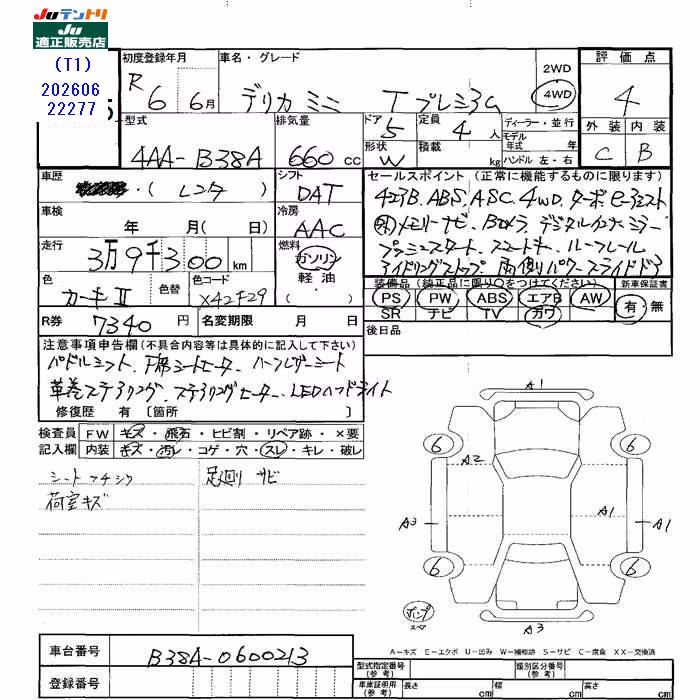 Juテントリ
Ju
適正販売店
(T1)
202606
22277
初度登録年月 R6 6月
車名・グレード デリカミニ T プレミアム
2WD
4WD
評価点
4
外装 内装
C B
型式 4AA-B38A
排気量 660cc
ドア 5
形状 W
定員 4人
積載 kg
ディーラー・並行
モデル年式 年
ハンドル 左・右
車歴 (レンタ)
シフト DAT
車検 年 月( 日)
冷房 AAC
走行 3万9千300km
燃料 ガソリン
軽油
( )
色 カーキII
色替
色コード X42F29
R券 7340円
名変期限 月 日
セールスポイント(正常に機能するものに限ります)
ABS. ASC. 4WD. ターボ
メモリーナビ. Bカメラ. デジタルインナーミラー
プッシュスタート. スマートキー. ルーフレール
アイドリングストップ. 両側パワースライドドア
装備品(純正品に限り○をつけてください)
PS PW ABS エアB AW
SR ナビ TV ガワ
新車保証書
有・無
後日品
注意事項申告欄(不具合内容等は具体的に記入して下さい)
パドルシフト. F席シートヒーター. ハーフレザーシート
革巻ステアリング. ステアリングヒーター. LEDヘッドライト
修復歴 有〔箇所 〕
検査員記入欄
FW キズ・飛石・ヒビ割・リペア跡・×要
内装 キズ・汚レ・コゲ・穴・スレ・キレ・破レ
足廻リ サビ
荷室キズ
A1
6 6
A2
A3 A1 A1
6 6
パンク
スペア
A3
A-キズ E-エクボ U-凹み W-補修跡 S-サビ C-腐食 XX-交換済
車台番号 B38A-0600213
登録番号
型式指定番号(参考)
類別区分番号(参考)
車庫証明用(参考) 長さ cm 幅 cm 高さ cm